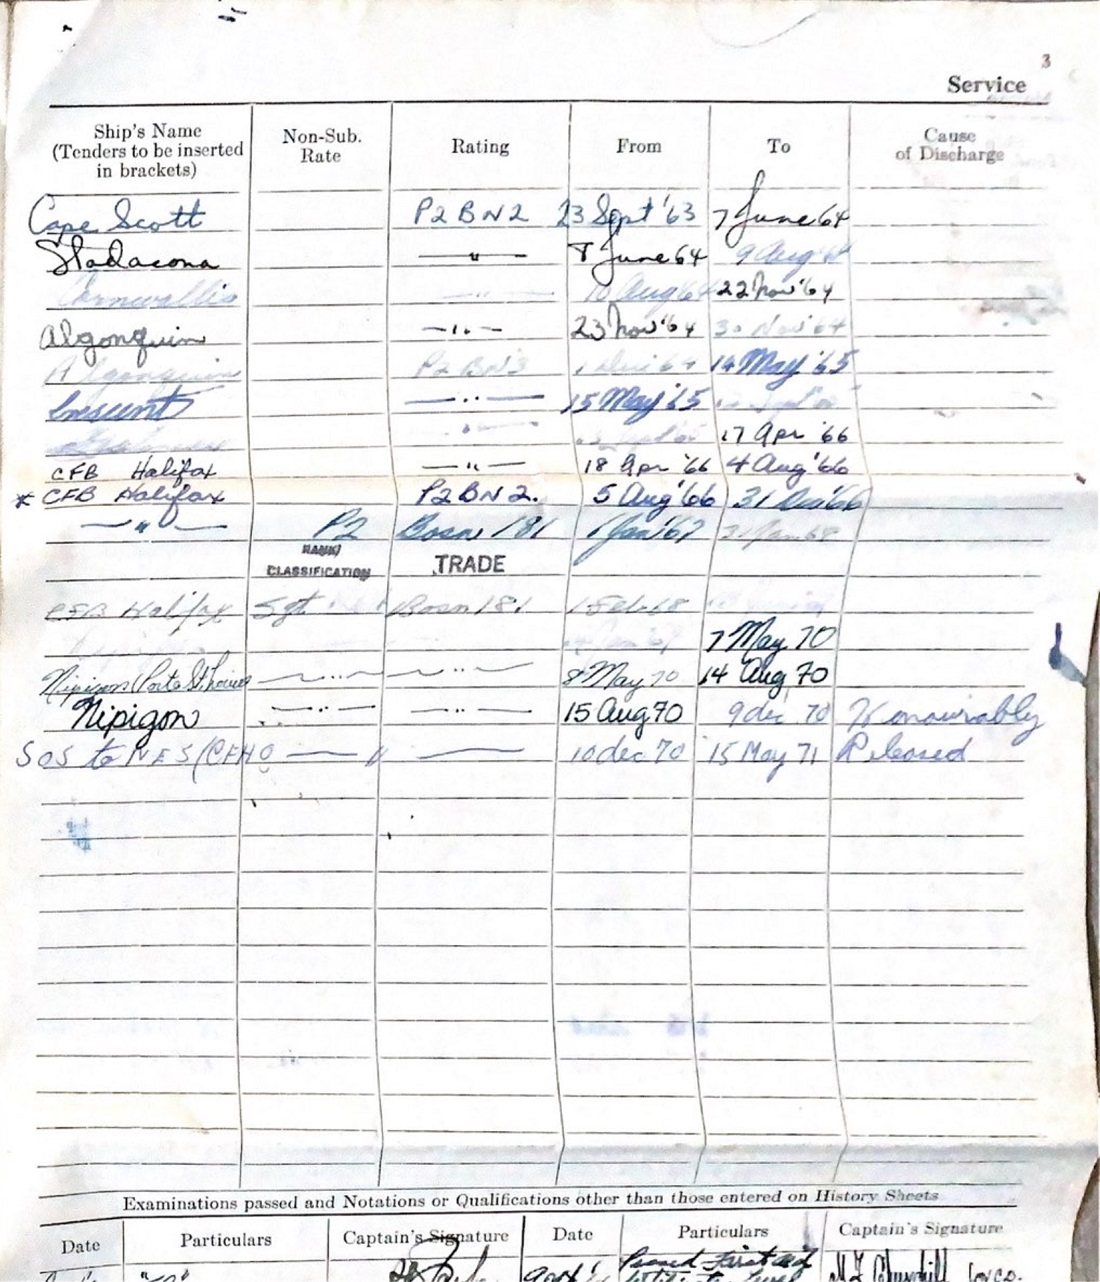 3
Service
Ship's Name (Tenders to be inserted in brackets) Non-Sub. Rate Rating From To Cause of Discharge
Cape Scott P2BN2 23 Sept '63 7 June 64
Stadacona — " — 8 June 64 9 Aug 64
Cornwallis — " — 10 Aug 64 22 Nov '64
Algonquin — " — 23 Nov '64 30 Nov '64
Algonquin P2BN3 1 64 14 May '65
Crescent — " — 15 May '65
— " — 17 Apr '66
CFB Halifax — " — 18 Apr '66 4 Aug '66
* CFB Halifax P2BN2. 5 Aug '66 31 Dec '66
— " — P2 Bosn 181 1 Jan '67 31 Jan 68
RANK/ CLASSIFICATION TRADE
CFB Halifax Sgt Bosn 181 1 Feb 68
7 May 70
Nipigon — " — — " — 8 May 70 14 Aug 70
Nipigon — " — — " — 15 Aug 70 9 dec 70 Honourably
SOS to NES (CFHQ — " — 10 dec 70 15 May 71 Released
Examinations passed and Notations or Qualifications other than those entered on History Sheets
Date Particulars Captain's Signature Date Particulars Captain's Signature
Passed First aid